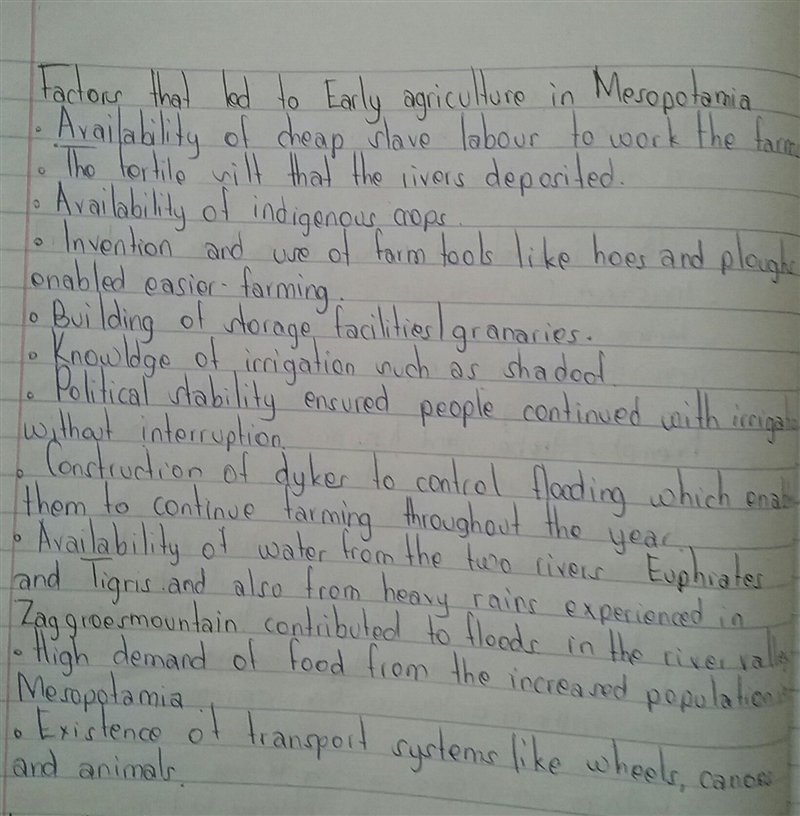 Factors that led to Early agriculture in Mesopotamia
• Availability of cheap slave labour to work the farm
• The fertile silt that the rivers deposited.
• Availability of indigenous crops.
• Invention and use of farm tools like hoes and ploughs
enabled easier farming.
• Building of storage facilities/granaries.
• Knowldge of irrigation such as shadoof
• Political stability ensured people continued with irrigat
without interruption
• Construction of dykes to control flooding which enab
them to continue farming throughout the year.
• Availability of water from the two rivers Euphrates
and Tigris and also from heavy rains experienced in
Zaggroesmountain contributed to floods in the river valley
• High demand of food from the increased population
Mesopotamia
• Existence of transport systems like wheels, canoes
and animals.